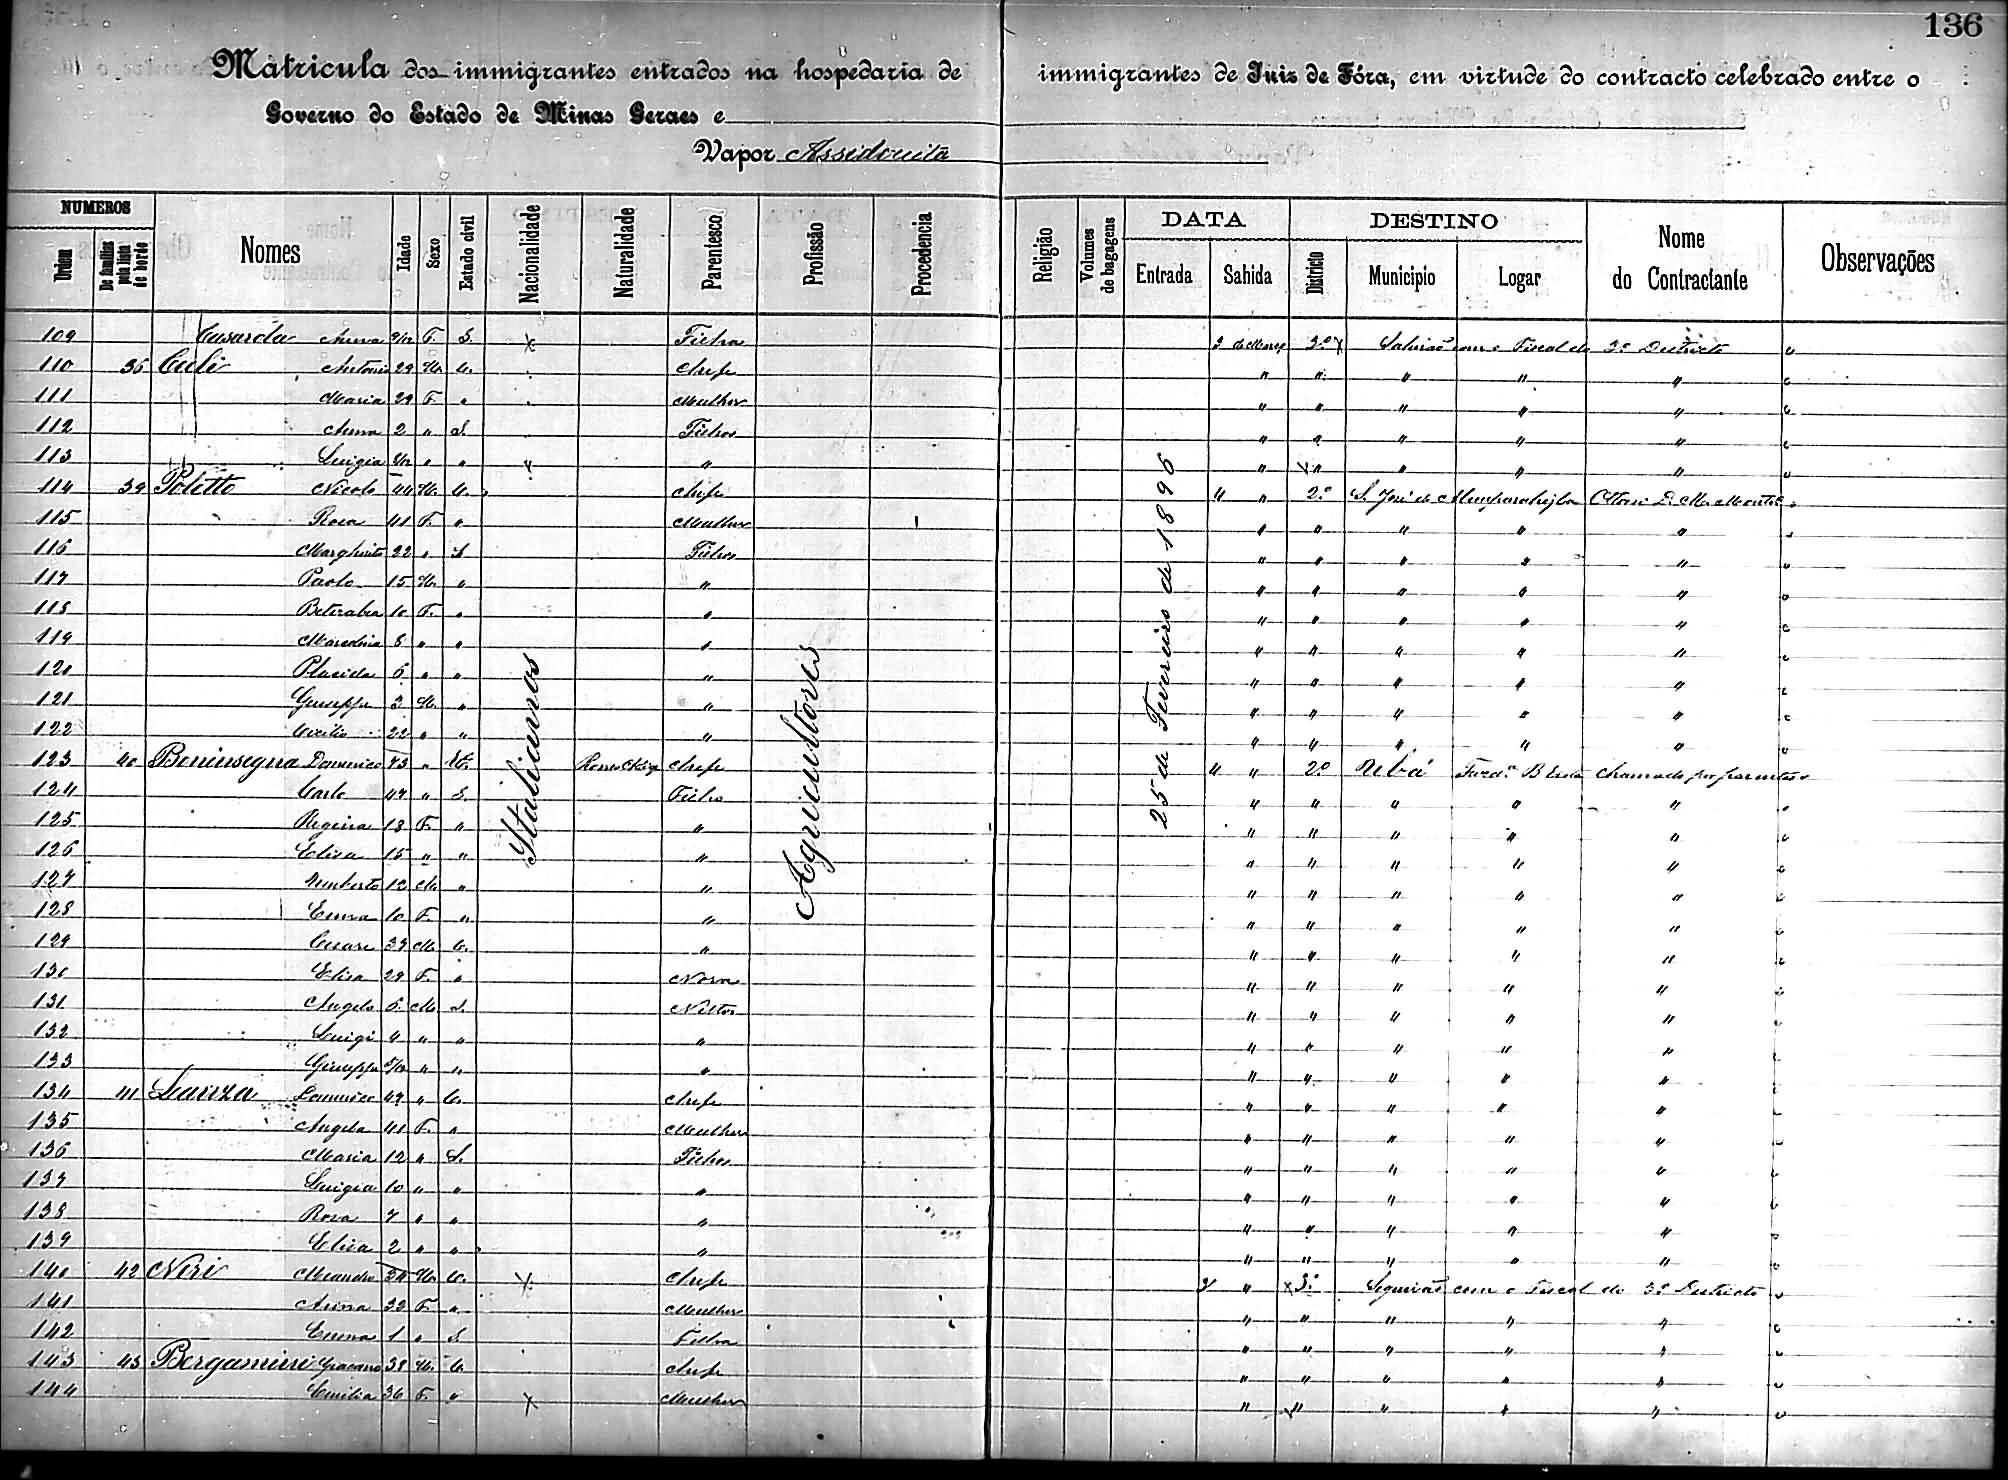 136
Matricula dos immigrantes entrados na hospedaria de immigrantes de Juiz de Fóra, em virtude do contracto celebrado entre o
Governo do Estado de Minas Geraes e
Vapor Assiduita
NUMEROS DATA DESTINO
Ordem De familias pela lista de bordo Nomes Idade Sexo Estado civil Nacionalidade Naturalidade Parentesco Profissão Procedencia Religião Volumes de bagagens Entrada Sahida Districto Municipio Logar Nome do Contractante Observações
Italianos
Agricultores
25 de Fevereiro de 1896
109 Casarola Anna 9/12 F. S. x Filha 3 de Março 3º x com o Fiscal do 3º Districto "
110 Antonio 29 M. C. Chefe " " " " " "
111 Maria 29 F. " Mulher " " " " " "
112 Anna 2 " S. Filhos " " " " " "
113 Luigia " " x " " x " " " " "
114 39 Poletto Nicolo 44 M. C. Chefe " " 2º S. José de Além Parahyba "
115 Rosa 41 F. " Mulher " " " " " "
116 Margherita 22 " S Filhos " " " " " "
117 Paolo 15 M. " " " " " " " "
118 10 F. " " " " " " " "
119 8 " " " " " " " " "
120 Placida 6 " " " " " " " " "
121 Giuseppe 3 M. " " " " " " " "
122 22 " " " " " " " " "
123 40 Boninsegna Domenico 73 " Chefe " " 2º Ubá Chamado por parentes "
124 Carlo 47 " S. Filho " " " " " "
125 Regina 18 F. " " " " " " " "
126 Elisa 15 " " " " " " " " "
127 Umberto 12 M " " " " " " " "
128 Emma 10 F. " " " " " " " "
129 Cesare 39 M. C. " " " " " " "
130 Elisa 29 F. " Nora " " " " " "
131 Angelo 6 M. S. Nettos " " " " " "
132 Luigi 4 " " " " " " " " "
133 Giuseppe 5/12 " " " " " " " " "
134 41 Lanza Domenico 49 " C. Chefe " " " " " "
135 Angela 41 F. " Mulher " " " " " "
136 Maria 12 " S. Filhos " " " " " "
137 Luigia 10 " " " " " " " " "
138 Rosa 7 " " " " " " " " "
139 Elisa 2 " " " " " " " " "
140 42 Niri 34 M. C. x Chefe 3 " x 3º Seguirão com o Fiscal do 3º Districto "
141 Anna 32 F. " Mulher " " " " " "
142 Emma 1 " S Filha " " " " " "
143 43 Bergamini 38 M. C. Chefe " " " " " "
144 Emilia 36 F. " x Mulher " x " " " " "